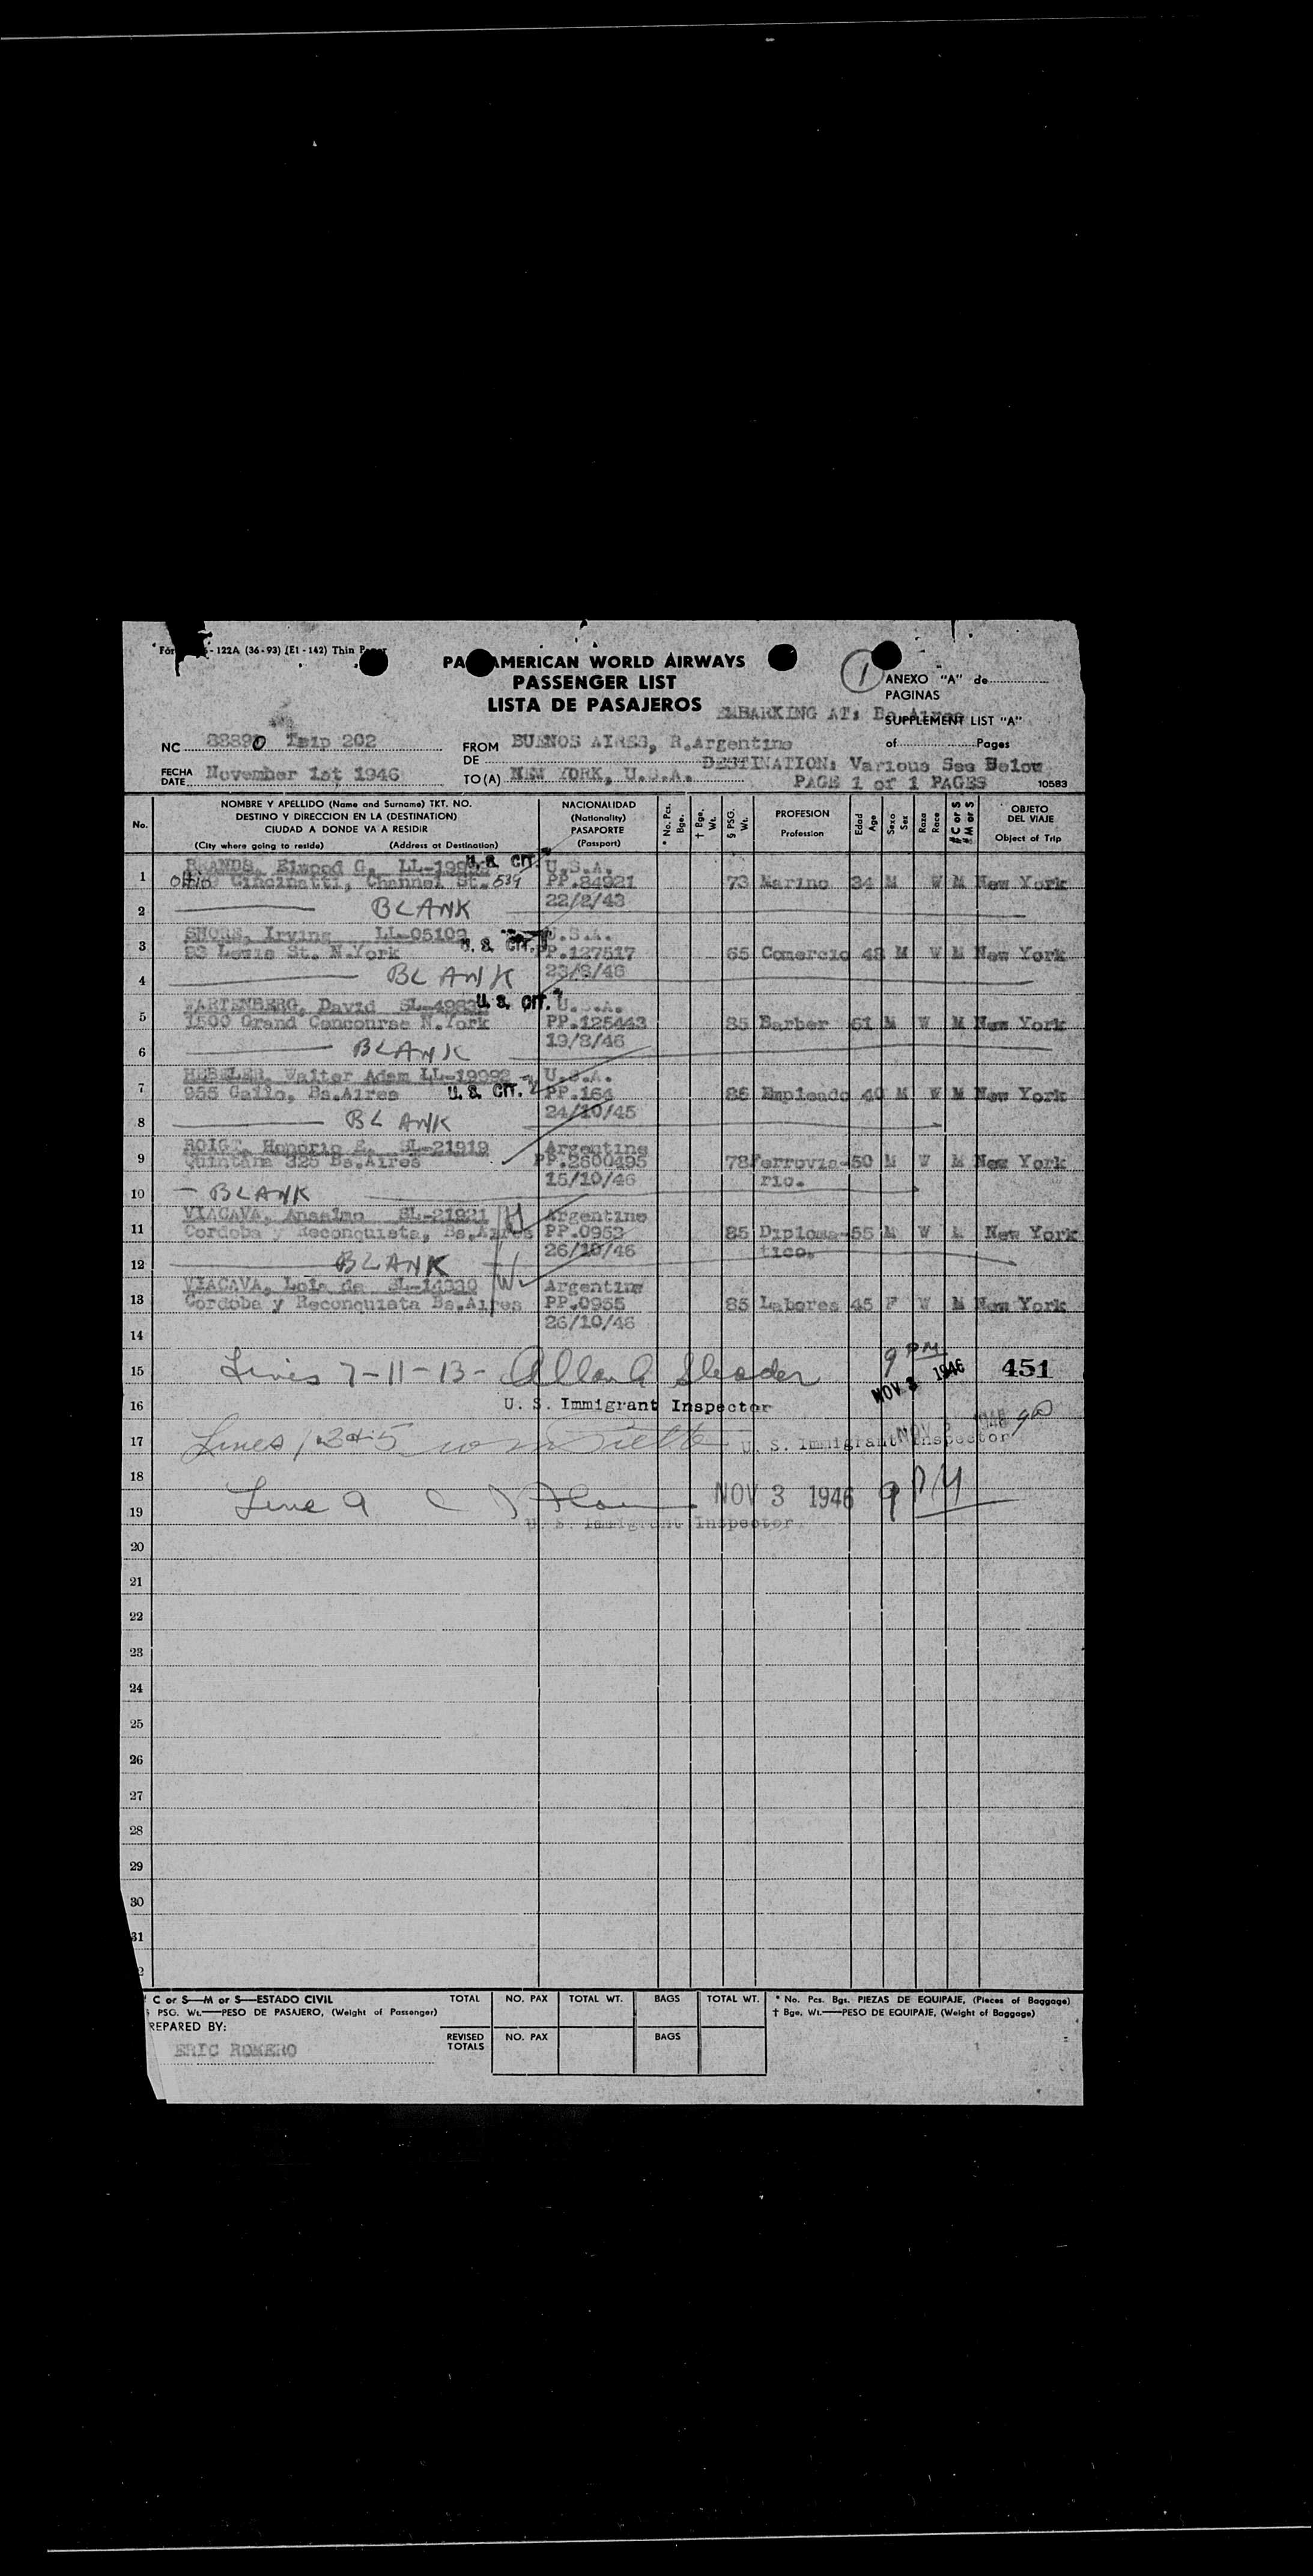 122A (36-93) (E1-142) Thin Paper
PAN AMERICAN WORLD AIRWAYS
PASSENGER LIST
LISTA DE PASAJEROS
1
ANEXO "A" de
PAGINAS
SUPPLEMENT LIST "A"
of Pages
EMBARKING AT: Bs.Aires
NC 88890 Trip 202
FROM DE BUENOS AIRES, R.Argentine
DESTINATION: Various See Below
FECHA DATE November 1st 1946
TO (A) NEW YORK, U.S.A.
PAGE 1 of 1 PAGES
10583
No.
NOMBRE Y APELLIDO (Name and Surname) TKT. NO.
DESTINO Y DIRECCION EN LA (DESTINATION)
CIUDAD A DONDE VA A RESIDIR
(City where going to reside) (Address at Destination)
NACIONALIDAD (Nationality) PASAPORTE (Passport)
* No. Pcs. Bge.
† Bge. Wt.
§ PSG. Wt.
PROFESION Profession
Edad Age
Sexo Sex
Raza Race
# C or S # M or S
OBJETO DEL VIAJE Object of Trip
BRANDS, Elwood G. U.S. CIT. U.S.A.
1 Ohio Cincinatti, Channel St. 539 PP.84921 73 Marino 34 M W M New York
2 BLANK 22/2/43
SHORS, Irving LL-05109 U.S.A.
3 83 Lewis St. N.York U.S. CIT. PP.127517 65 Comercio 48 M W M New York
4 BLANK 23/8/46
WARTENBERG, David U.S. CIT. U.S.A.
5 1500 Grand Concourse N.York PP.125443 85 Barber 51 M W M New York
6 BLANK 19/8/46
HEBELER, Walter Adam U.S.A.
7 955 Gallo, Bs.Aires U.S. CIT. PP.164 86 Empleado 40 M W M New York
8 BLANK 24/10/45
Honorio E. SL-21919 Argentine
9 Quintana 325 Bs.Aires PP.2600495 78 Ferrovia- 50 M W M New York
10 BLANK 15/10/46 rio.
VIACAVA, Anselmo SL-21921 Argentine
11 Cordoba y Reconquista, Bs.Aires PP.0953 85 Diploma- 55 M W M New York
12 BLANK 26/10/46 tico.
VIACAVA, Lola de SL-14330 Argentine
13 Cordoba y Reconquista Bs.Aires PP.0955 85 Labores 45 F W M New York
14 26/10/46
15 Lines 7-11-13- 9 PM NOV 3 1946 451
16 U. S. Immigrant Inspector
17 Lines 1, 3 & 5 U. S. Immigrant Inspector
18
19 Line 9 NOV 3 1946 9 PM
U. S. Immigrant Inspector
20
21
22
23
24
25
26
27
28
29
30
31
C or S—M or S—ESTADO CIVIL
PSG. Wt.—PESO DE PASAJERO, (Weight of Passenger)
REPARED BY:
ERIC ROMERO
TOTAL NO. PAX TOTAL WT. BAGS TOTAL WT.
REVISED TOTALS NO. PAX BAGS
* No. Pcs. Bgs. PIEZAS DE EQUIPAJE, (Pieces of Baggage)
† Bge. Wt.—PESO DE EQUIPAJE, (Weight of Baggage)